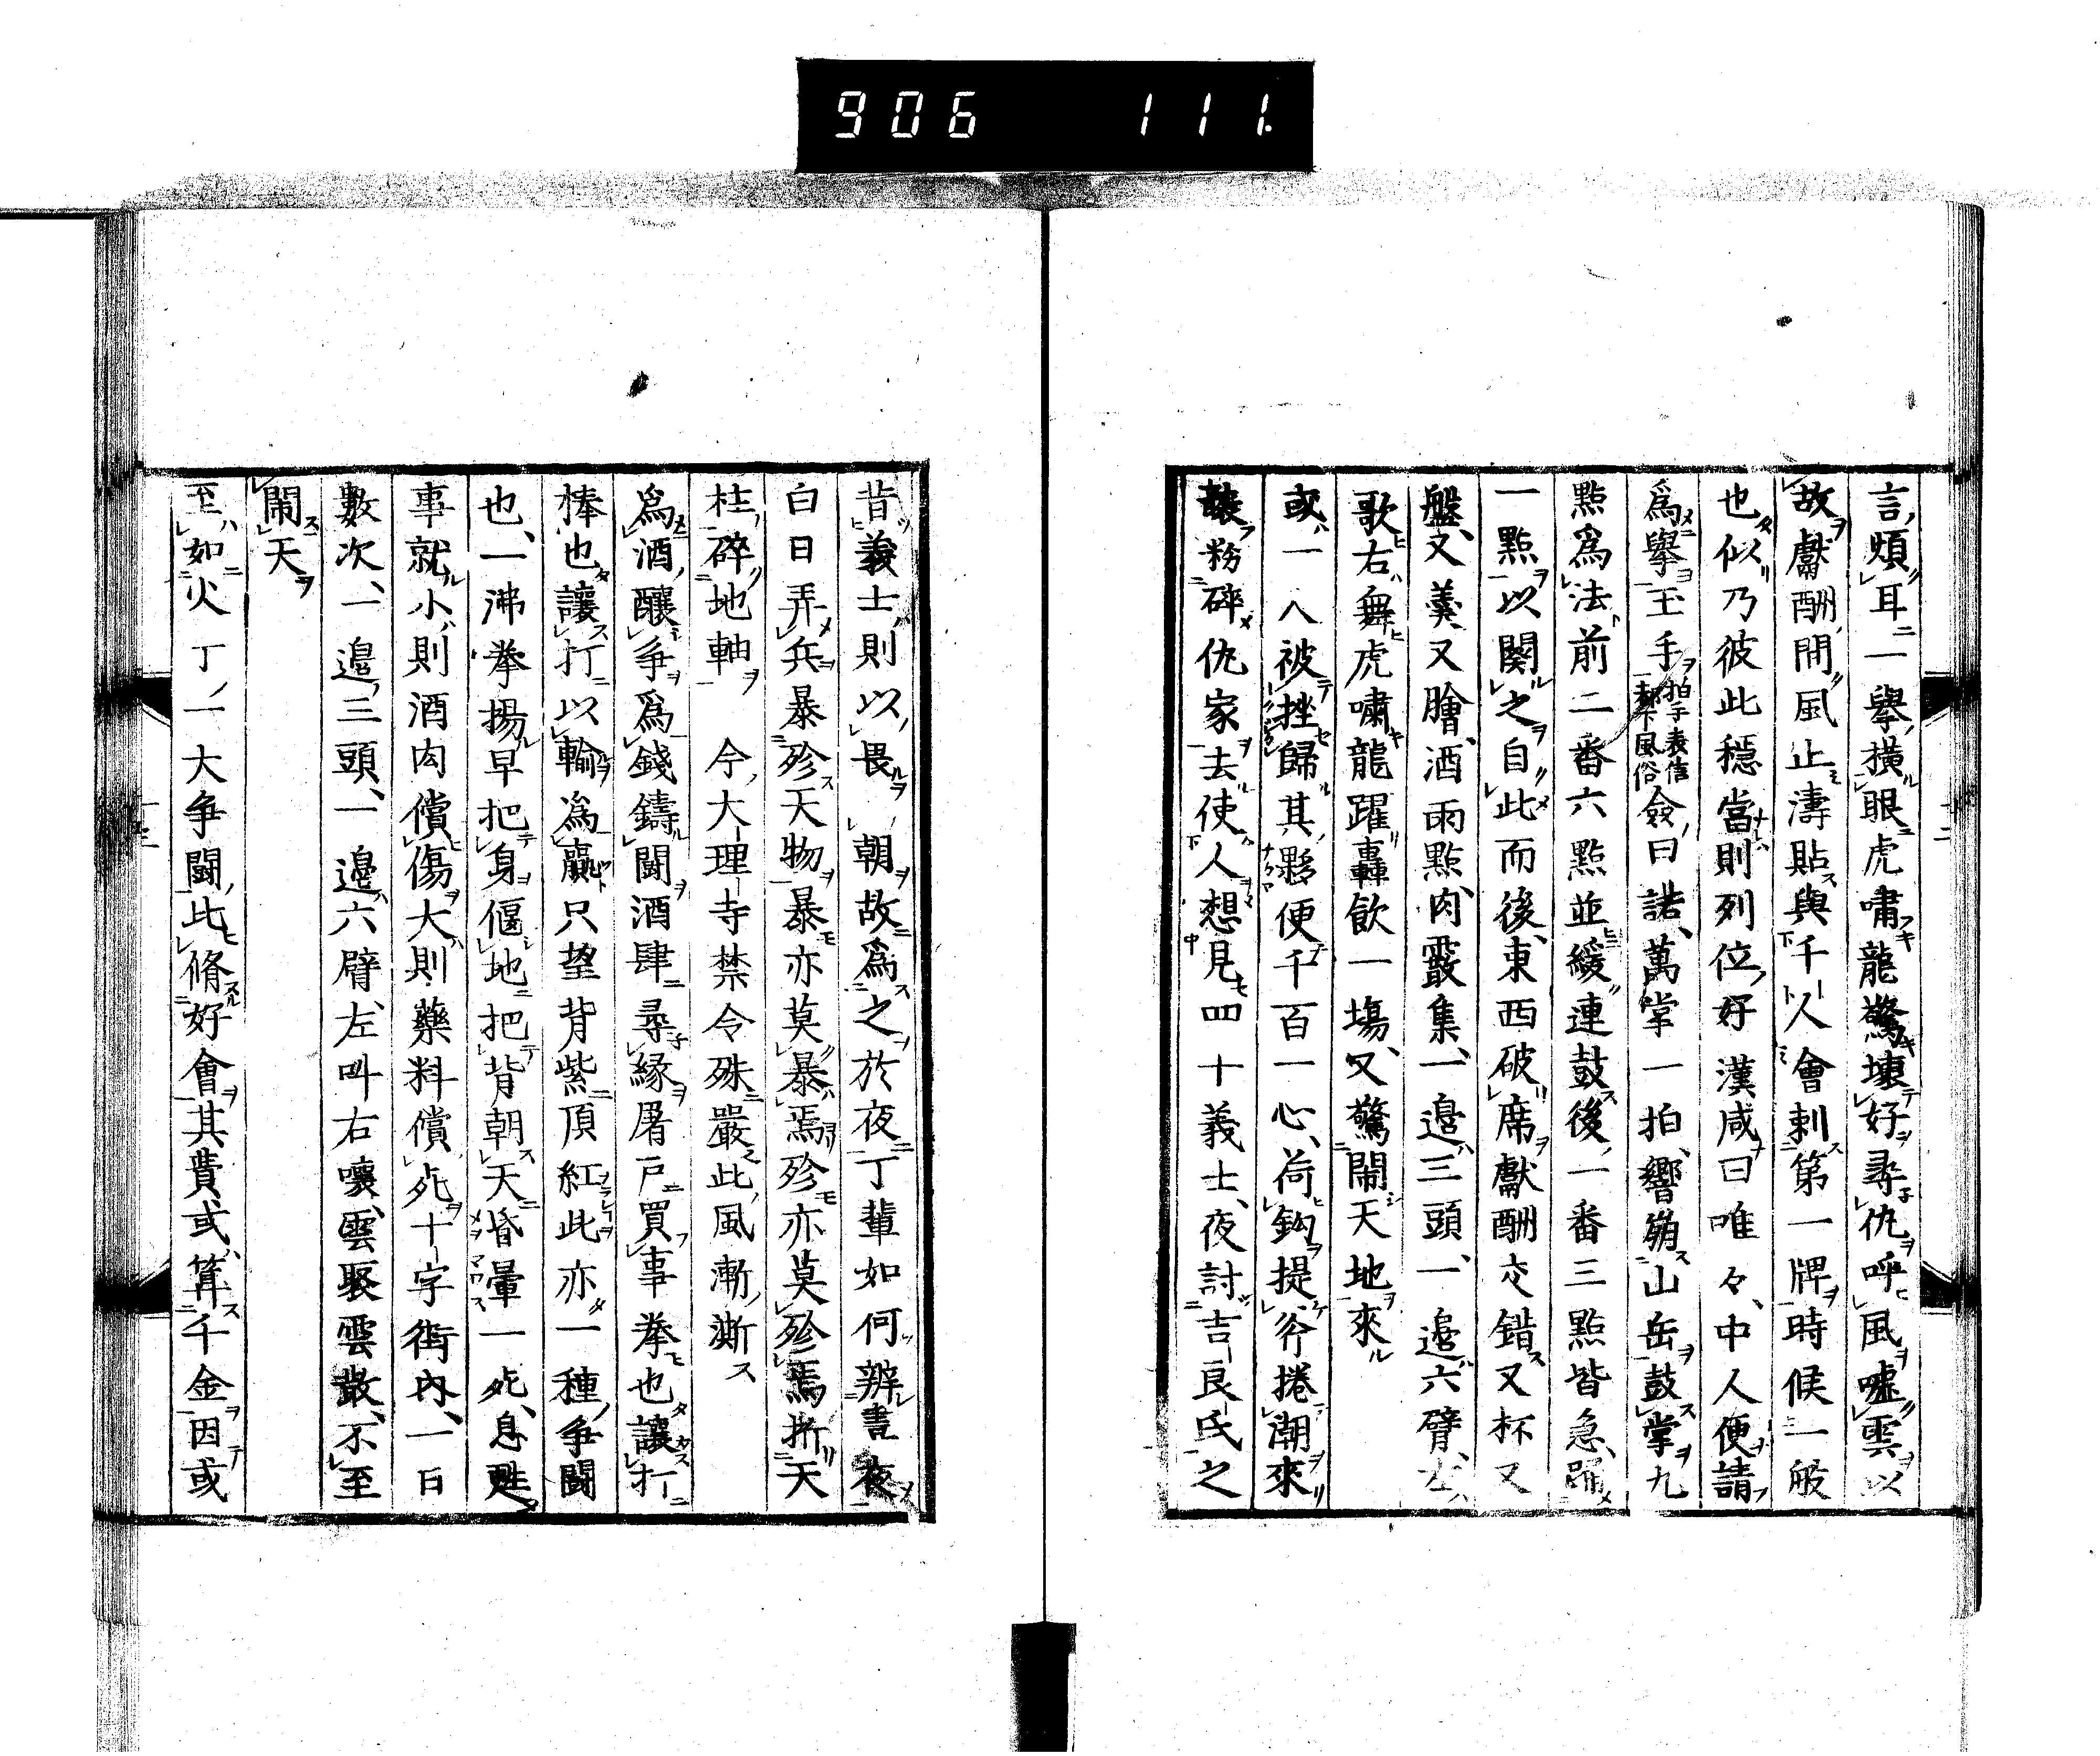 906 111.
言煩耳一擧横眼虎嘯龍驚壞好尋仇呼風嘘雲以
故獻酬間風止濤貼與千人會剌第一牌時候一般
也似乃彼此穩當則列位好漢咸曰唯々、中人便請
爲擧玉手拍手表信都下風俗僉曰諾、萬掌一拍、響崩山岳鼓掌九
點爲法前二番六點並緩連鼓後一番三點皆急、
一點以関之自此而後、東西破席獻酬交錯又杯又
盤、又羮又膾、酒雨點、肉霰集、一邉三頭、一邉六臂、左
歌右舞虎嘯龍躍轟飲一塲、又驚鬧天地來
或一人被挫歸其夥便千百一心、荷鈎提斧捲潮來
粉碎仇家去使人想見四十義士、夜討吉良氏之
昔義士則以畏朝故爲之於夜丁輩如何辨晝夜
白日弄兵暴殄天物暴亦莫暴焉殄亦莫殄焉折天
柱碎地軸　今大理寺禁令殊嚴此風漸澌
爲酒釀爭爲錢鑄鬪酒肆尋縁屠戸買事拳也讓打
棒也讓打以輸爲贏只望背紫頂紅此亦一種爭鬪
也、一沸拳揚早把身偃地把背朝天昏暈一死、息甦
事就小則酒肉償傷大則藥料償死十字街内、一日
數次、一邉三頭、一邉六臂、左叫右嚷、雲聚雲散、不至
鬧天
至如火丁一大爭鬪此脩好會其費或筭千金因或